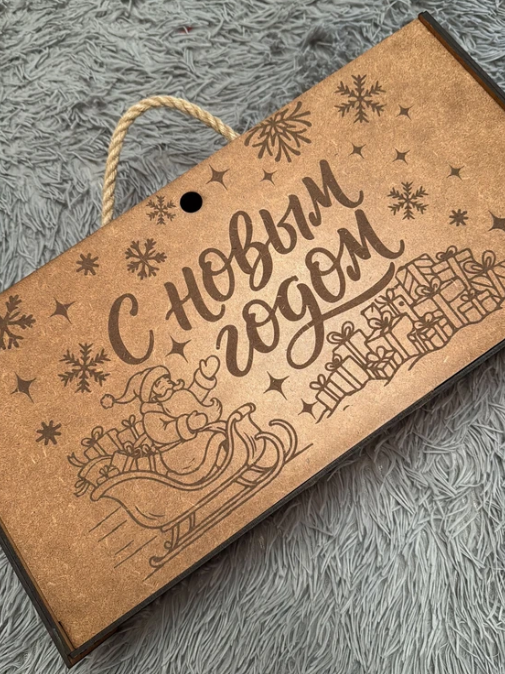 С новым
годом